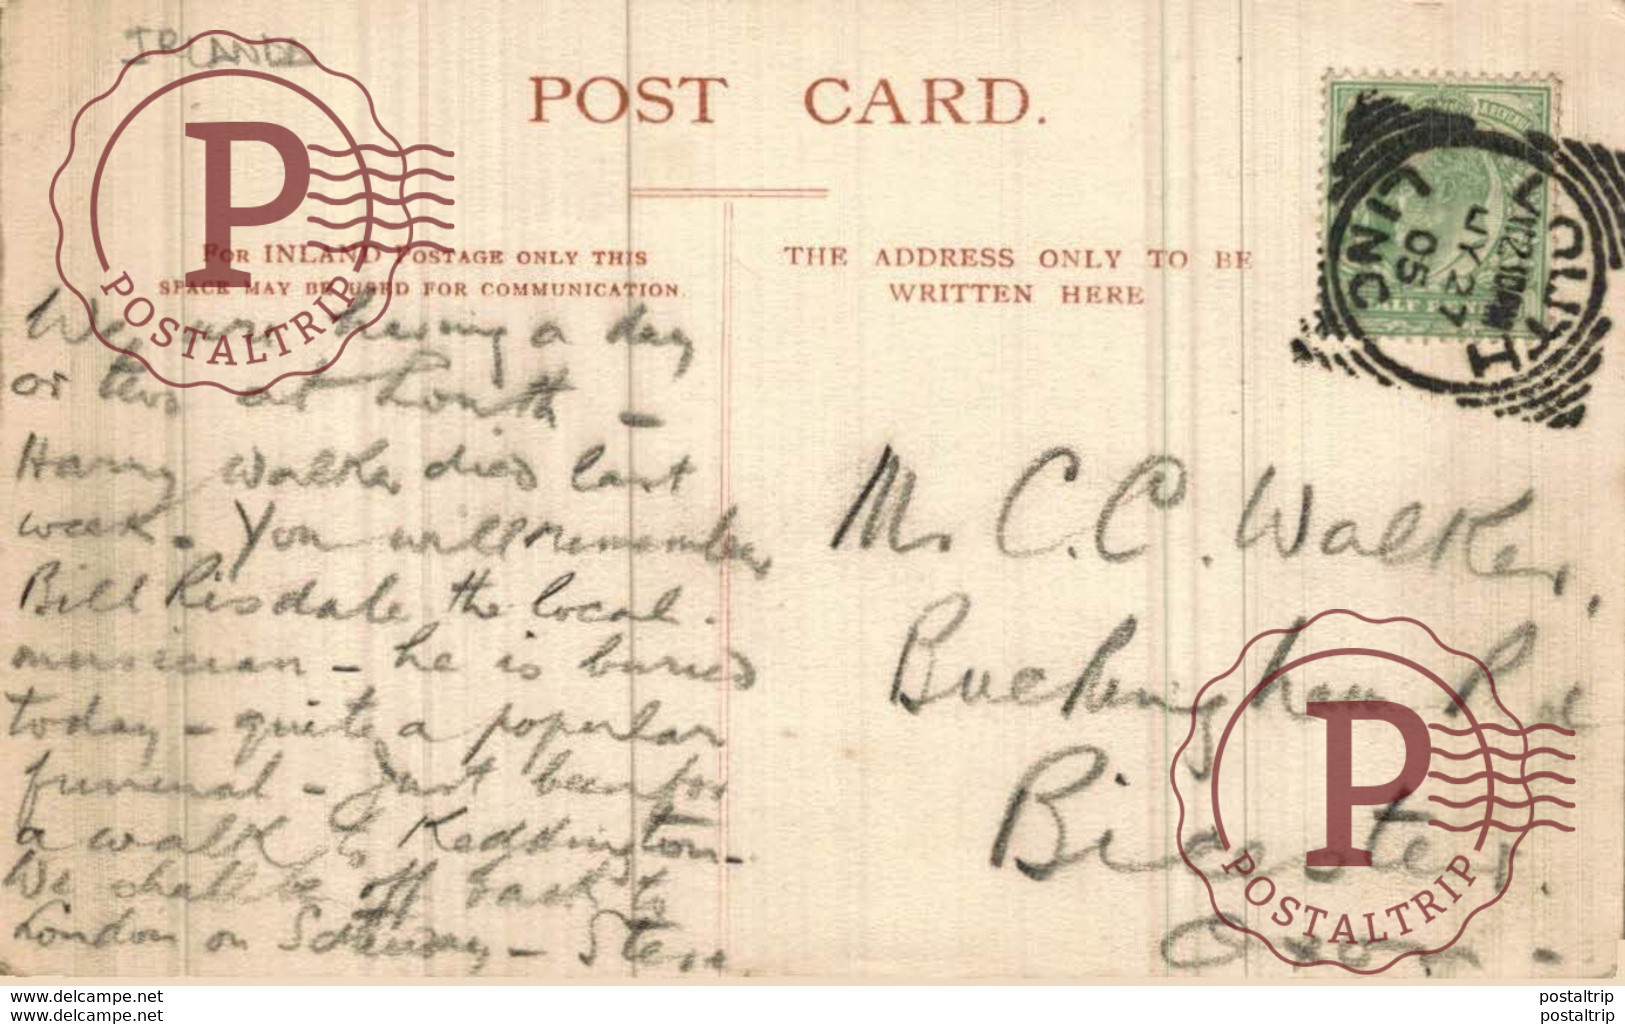 IRLANDA
POST CARD.
FOR INLAND POSTAGE ONLY THIS
SPACE MAY BE USED FOR COMMUNICATION.
THE ADDRESS ONLY TO BE
WRITTEN HERE
We are having a day
or two at Louth -
Harry Walker died last
week. You will remember
Bill Risdale the local
musician - he is buried
today - quite a popular
funeral - Just been for
a walk to Keddington -
We shall be off back to
London on Saturday - Steve
Mr C. C. Walker,
Buckingham Rd
Bicester.
Oxon -
LOUTH
LINC
JY 27
05
P
POSTALTRIP
P
POSTALTRIP
www.delcampe.net
www.delcampe.net
postaltrip
postaltrip